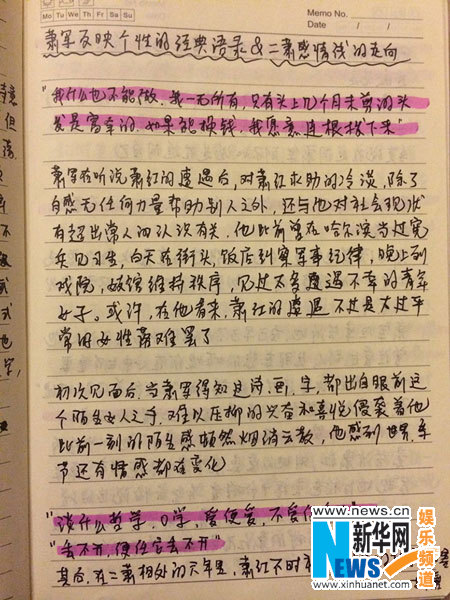 Memo No.
Mo Tu We Th Fr Sa Su
Date / /
萧军反映个性的经典语录&二萧感情线的走向
"我什么也不能做,我一无所有,只有头上几个月未剪的头
发是富率的,如果能换钱,我愿意连根拔下来"
萧军在听说萧红的遭遇后,对萧红求助的冷淡,除了
自感无任何力量帮助别人之外,还与他对社会现状
有超出常人的认识有关,他此前曾在哈尔滨当过宪
兵见习生,白天在街头,饭店纠察军事纪律,晚上到
戏院,妓馆维持秩序,见过不多遭遇不幸的青年
女子。或许,在他看来,萧红的遭遇不过是太过平
常的女性落难罢了
初次见面后,当萧军得知这诗、画、字,都出自眼前这
个陌生女人之手,难以压抑的兴奋和喜悦侵袭着他
此前一刻的陌生感顿然烟消云散,他感到世界,季
节还有情感都在变化
"谈什么哲学,O学,爱便爱,不爱
"丢不开,便任它丢不开"
其后,在二萧相处的六年里,萧红不时
www.news.cn
NEWS 新华网
www.xinhuanet.com
娱乐频道